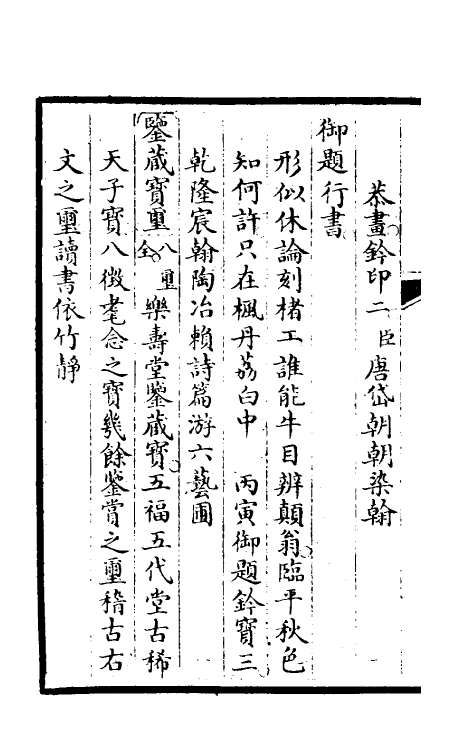 恭畫鈐印二臣唐岱朝朝染翰
御題行書
形似休論刻楮工誰能牛目辨顛翁臨平秋色
知何許只在楓丹荔白中　丙寅御題鈐寶三
乾隆宸翰陶冶賴詩篇游六藝圃
鑒藏寶璽八璽全樂壽堂鑒藏寶五福五代堂古稀
天子寶八徵耄念之寶幾餘鑒賞之璽稽古右
文之璽讀書依竹靜